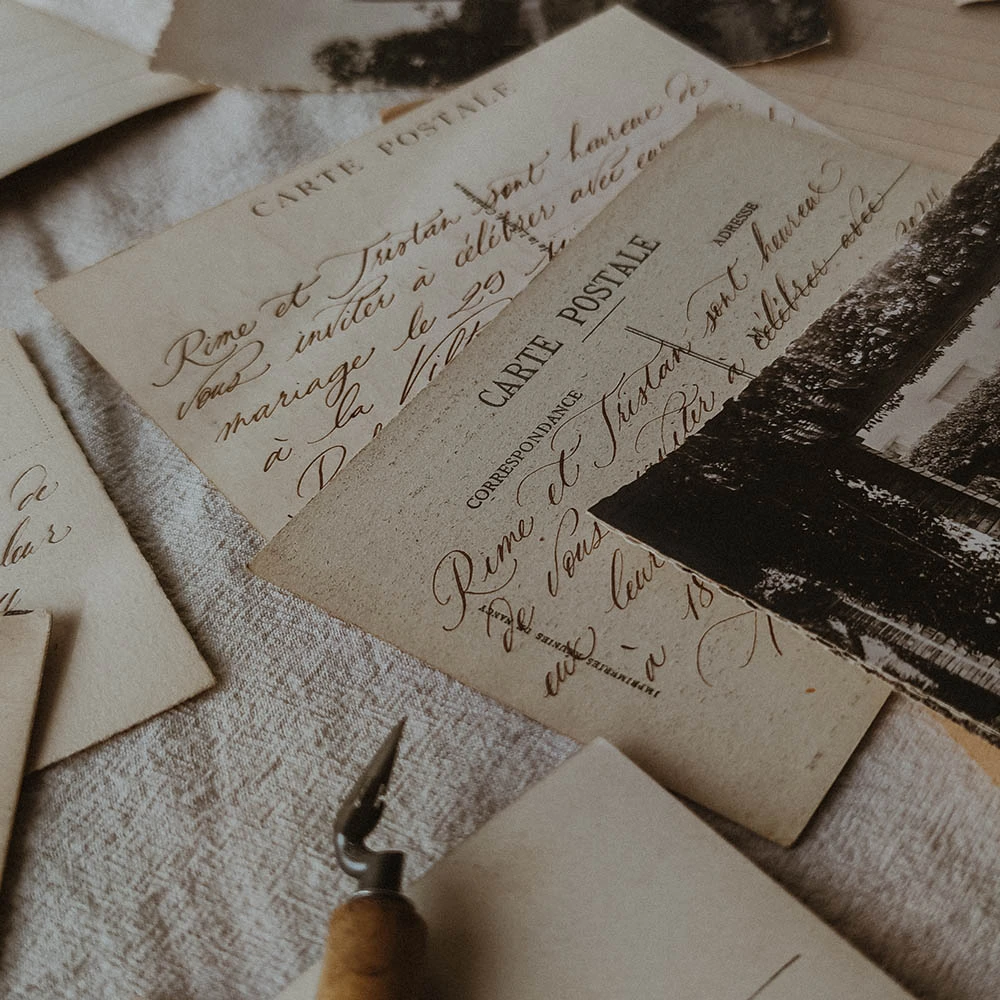 CARTE POSTALE
Rime et Tristan sont heureux de
vous inviter à célébrer avec
mariage le 29
à la
CARTE POSTALE
CORRESPONDANCE
ADRESSE
Rime et Tristan sont heureux
de vous inviter à célébrer avec
eux leur
à 18
IMPRIMERIES RÉUNIES DE NANCY
de
leur